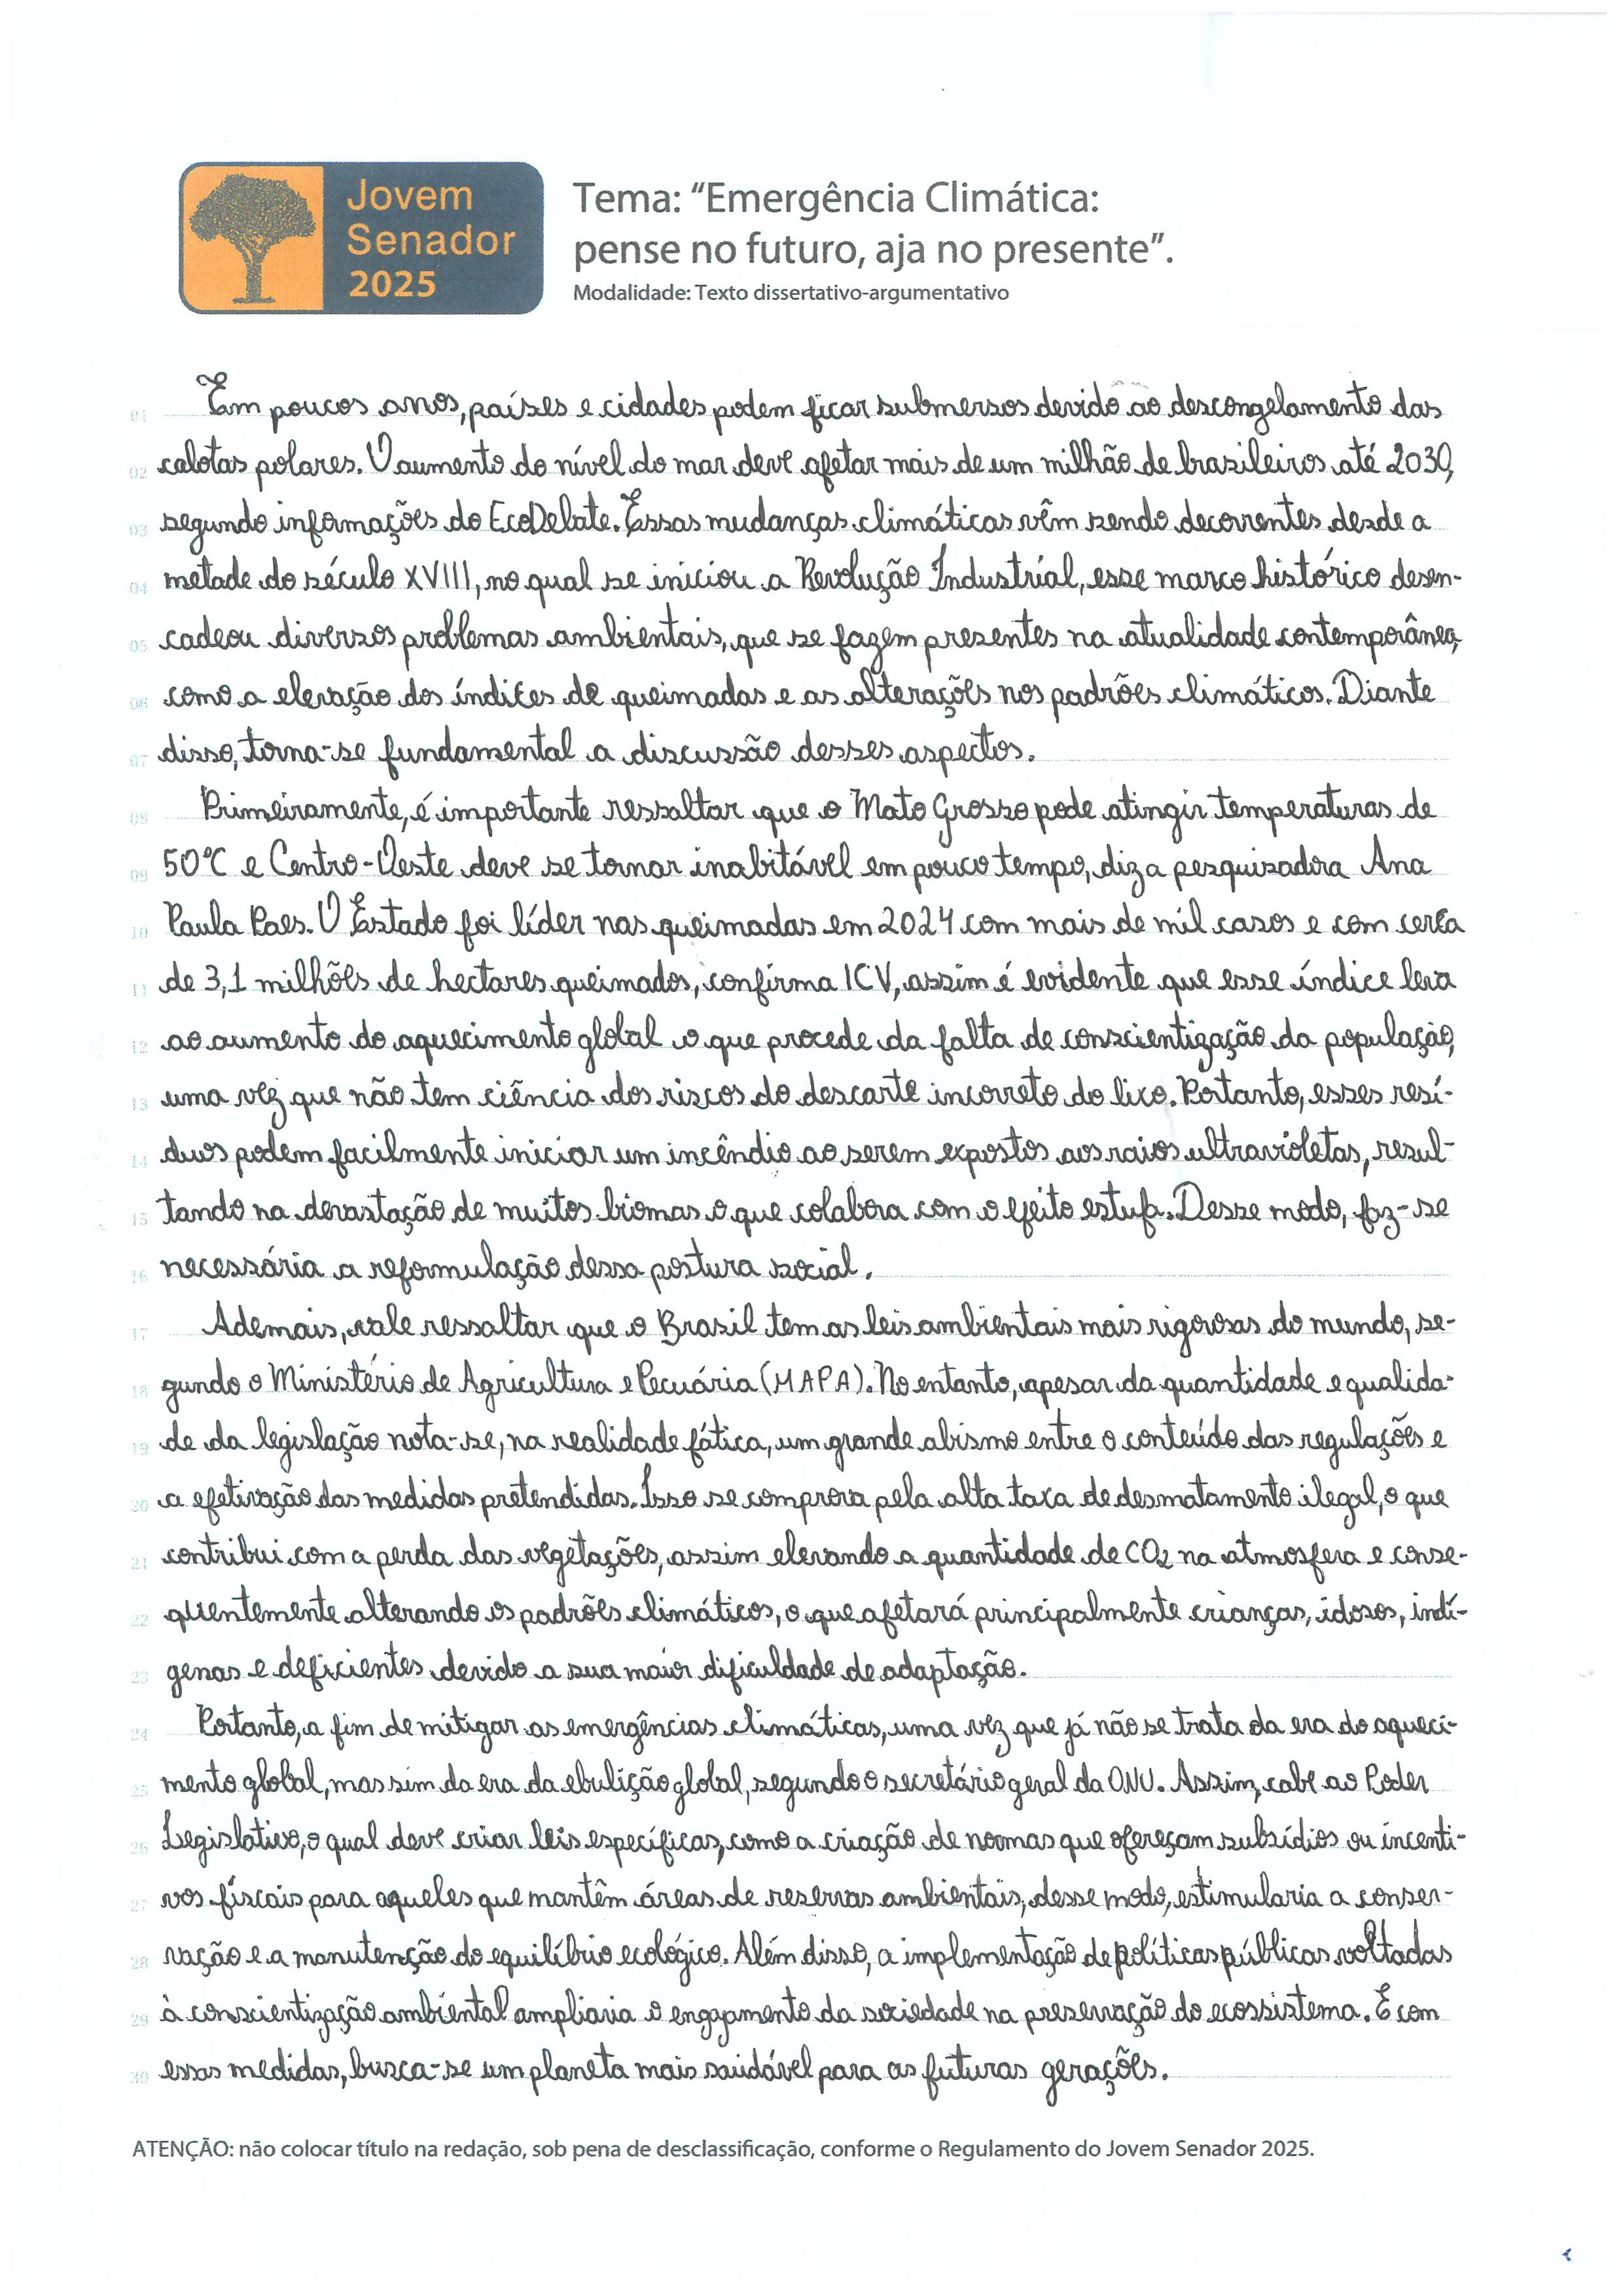 Jovem
Senador
2025
Tema: “Emergência Climática:
pense no futuro, aja no presente”.
Modalidade: Texto dissertativo-argumentativo
01 Em poucos anos, países e cidades podem ficar submersos devido ao descongelamento das
02 calotas polares. O aumento do nível do mar deve afetar mais de um milhão de brasileiros até 2030,
03 segundo informações do EcoDebate. Essas mudanças climáticas vêm sendo decorrentes desde a
04 metade do século XVIII, no qual se iniciou a Revolução Industrial, esse marco histórico desen-
05 cadeou diversos problemas ambientais, que se fazem presentes na atualidade contemporânea,
06 como a elevação dos índices de queimadas e as alterações nos padrões climáticos. Diante
07 disso, torna-se fundamental a discussão desses aspectos.
08 Primeiramente, é importante ressaltar que o Mato Grosso pode atingir temperaturas de
09 50°C e Centro-Oeste deve se tornar inabitável em pouco tempo, diz a pesquisadora Ana
10 Paula Paes. O Estado foi líder nas queimadas em 2024 com mais de mil casos e com cerca
11 de 3,1 milhões de hectares queimados, confirma ICV, assim é evidente que esse índice leva
12 ao aumento do aquecimento global o que procede da falta de conscientização da população,
13 uma vez que não tem ciência dos riscos do descarte incorreto do lixo. Portanto, esses resí-
14 duos podem facilmente iniciar um incêndio ao serem expostos aos raios ultravioletas, resul-
15 tando na devastação de muitos biomas o que colabora com o efeito estufa. Desse modo, faz-se
16 necessária a reformulação dessa postura social.
17 Ademais, vale ressaltar que o Brasil tem as leis ambientais mais rigorosas do mundo, se-
18 gundo o Ministério de Agricultura e Pecuária (MAPA). No entanto, apesar da quantidade e qualida-
19 de da legislação nota-se, na realidade fática, um grande abismo entre o conteúdo das regulações e
20 a efetivação das medidas pretendidas. Isso se comprova pela alta taxa de desmatamento ilegal, o que
21 contribui com a perda das vegetações, assim elevando a quantidade de CO2 na atmosfera e conse-
22 quentemente alterando os padrões climáticos, o que afetará principalmente crianças, idosos, indí-
23 genas e deficientes devido a sua maior dificuldade de adaptação.
24 Portanto, a fim de mitigar as emergências climáticas, uma vez que já não se trata da era do aqueci-
25 mento global, mas sim da era da ebulição global, segundo o secretário geral da ONU. Assim, cabe ao Poder
26 Legislativo, o qual deve criar leis específicas, como a criação de normas que ofereçam subsídios ou incenti-
27 vos fiscais para aqueles que mantêm áreas de reservas ambientais, desse modo, estimularia a conser-
28 vação e a manutenção do equilíbrio ecológico. Além disso, a implementação de políticas públicas voltadas
29 à conscientização ambiental ampliaria o engajamento da sociedade na preservação do ecossistema. E com
30 essas medidas, busca-se um planeta mais saudável para as futuras gerações.
ATENÇÃO: não colocar título na redação, sob pena de desclassificação, conforme o Regulamento do Jovem Senador 2025.